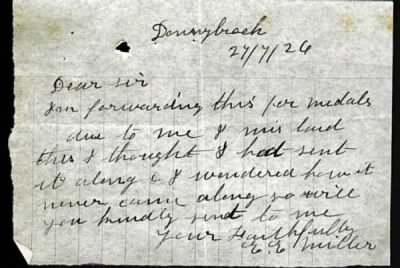 Donnybrook
27/7/26
Dear sir
I am forwarding this for medals
due to me I mis laid
this I thought I had sent
it along & I wondered how it
never came along so will
you kindly send to me
Your Faithfully
E. E. Miller